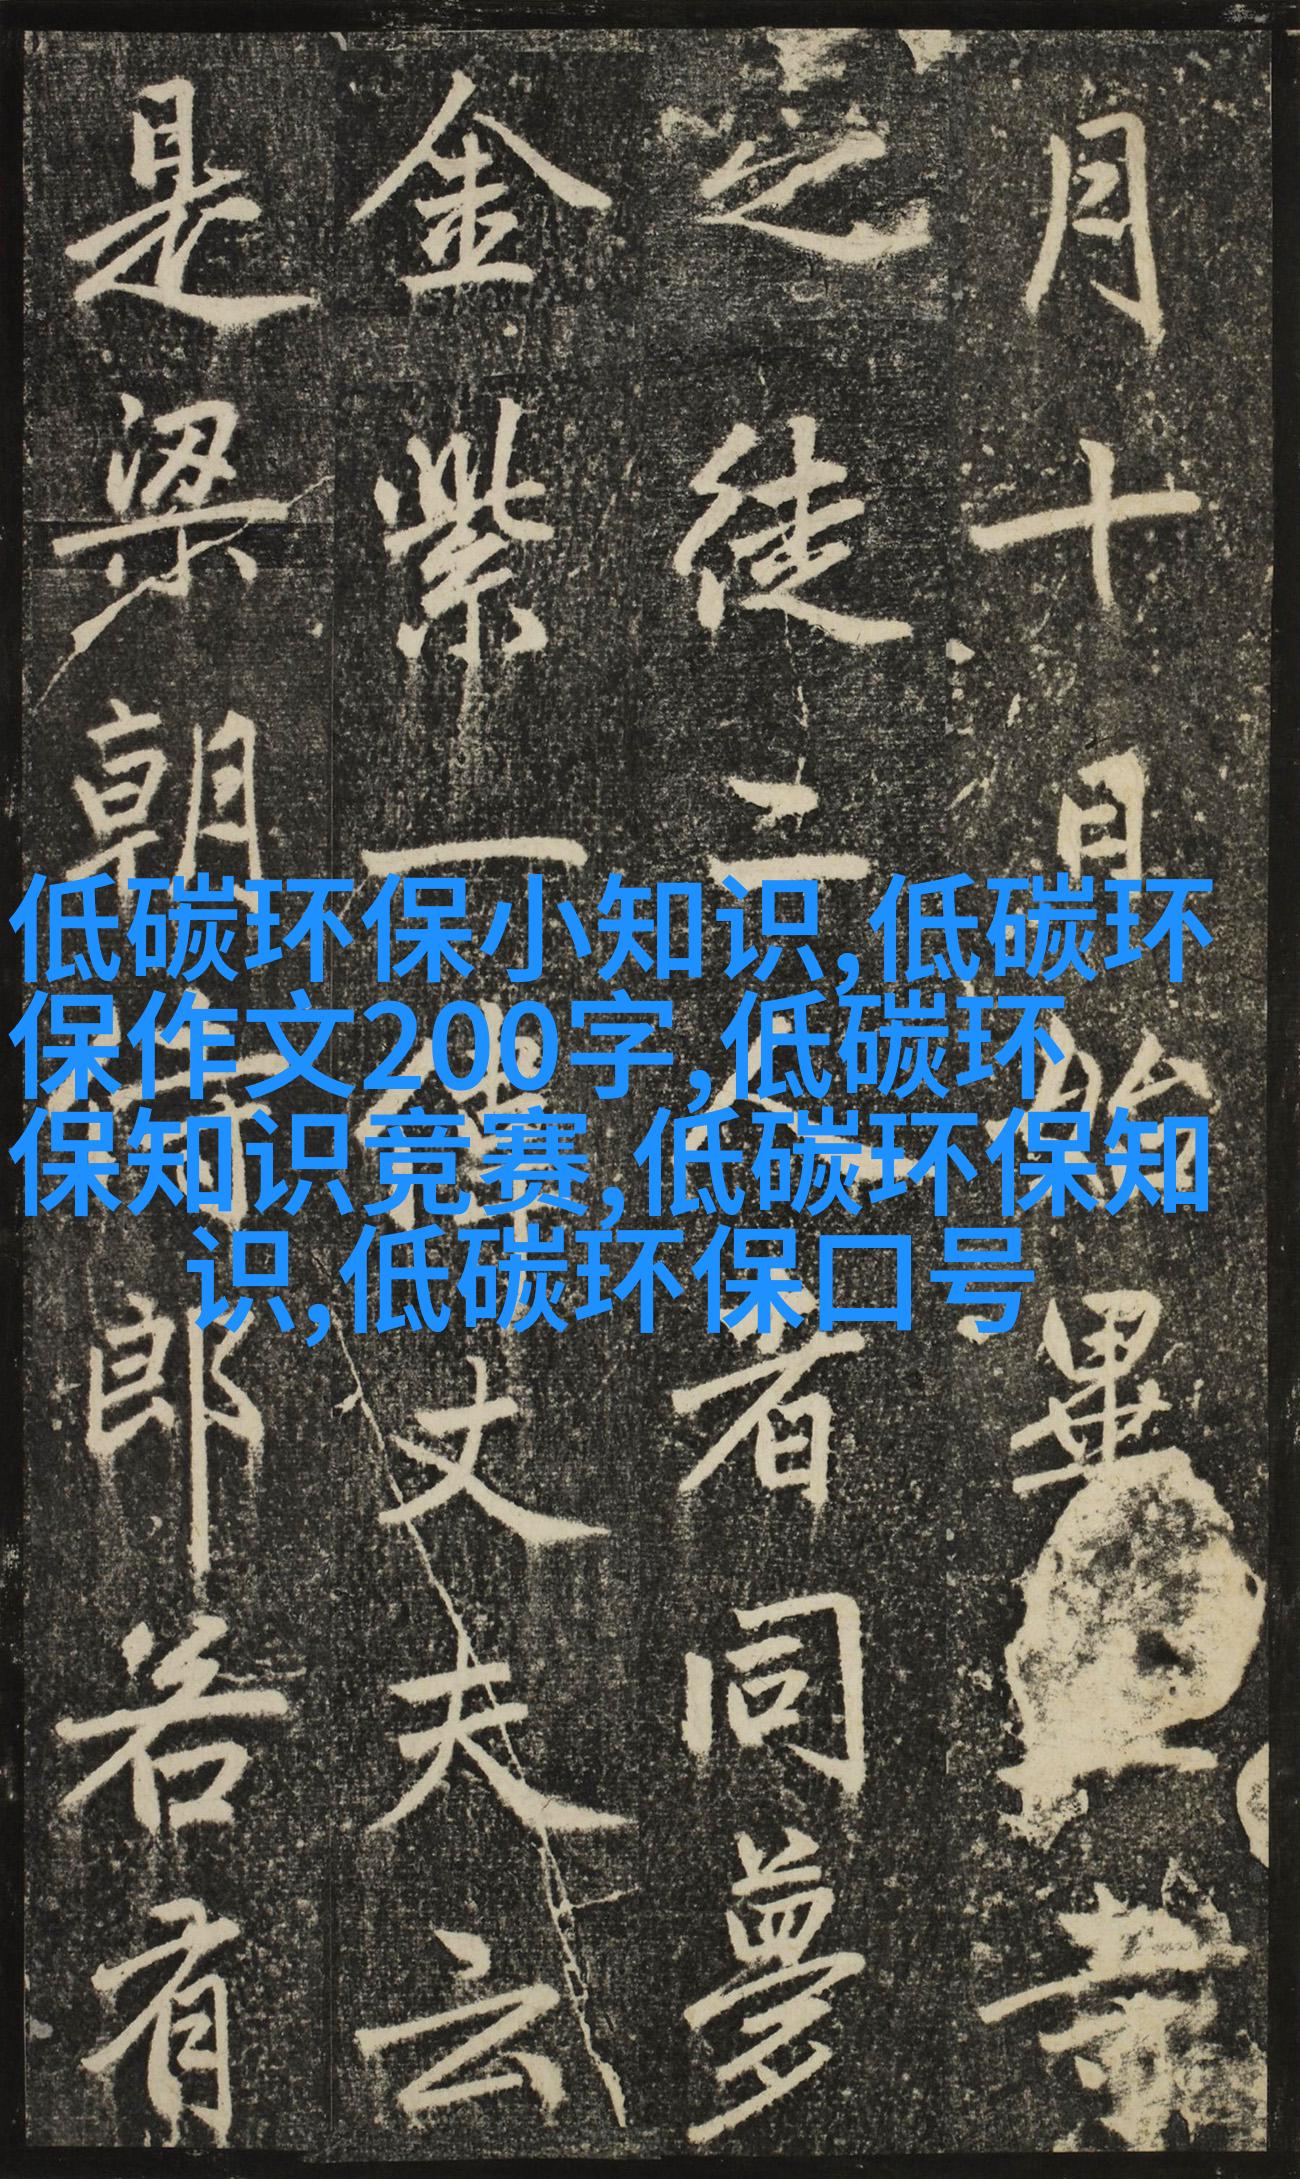 低碳环保小知识,低碳环
保作文200字,低碳环
保知识竞赛,低碳环保知
识,低碳环保口号
月十畢
之徒二人者同夢
金紫一丈夫云
是梁朝侍郎若有